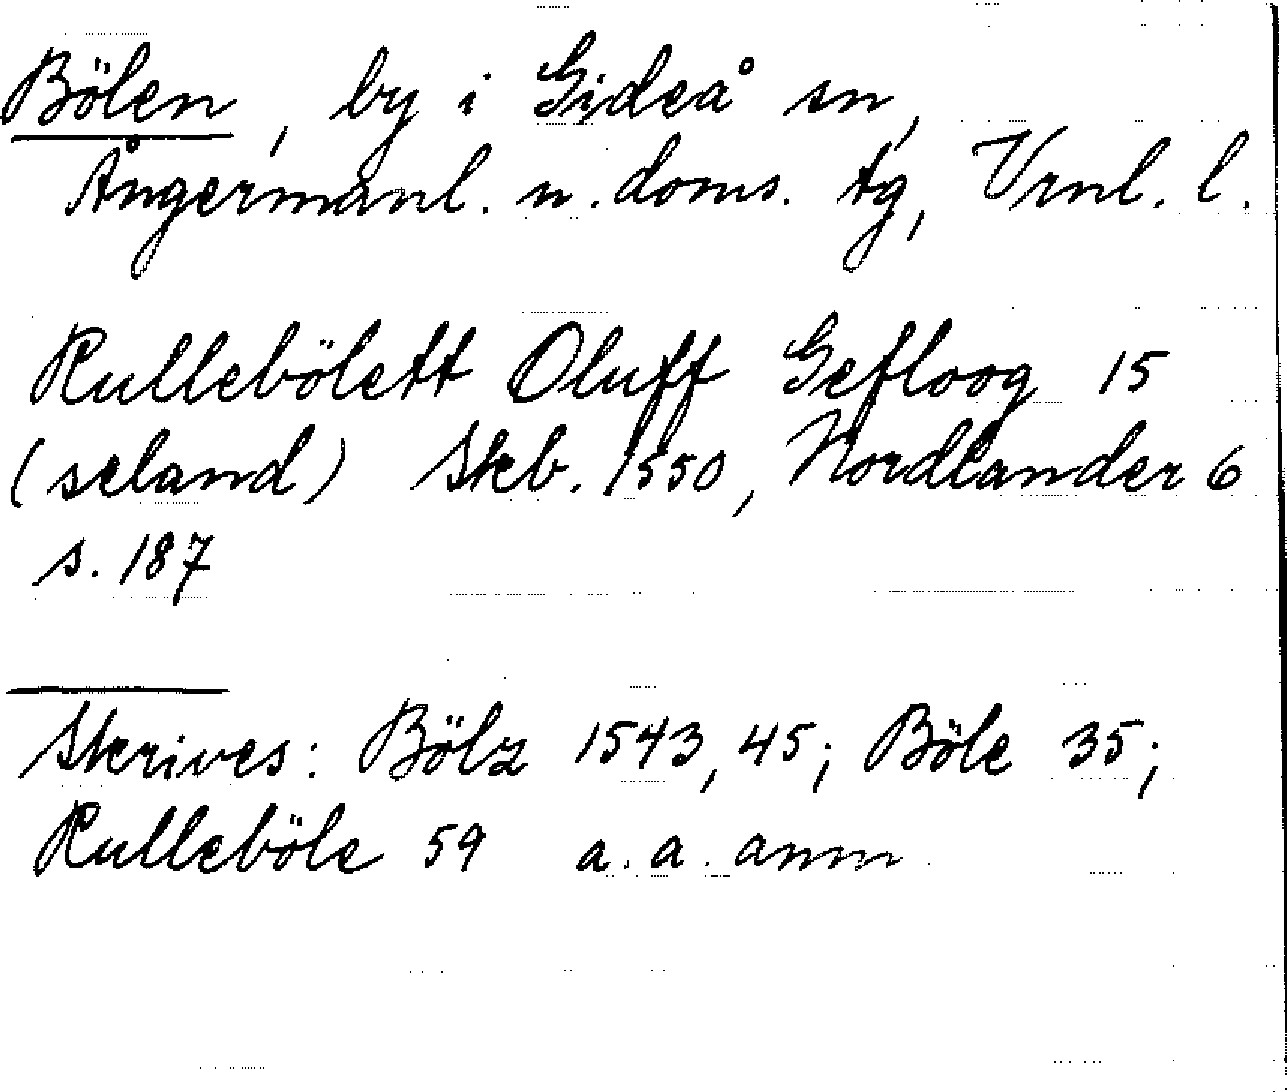 Bölen, by i Gideå sn,
Ångermanl. n. doms. tg, Vrnl. l.
Kullebölett Oluff Gefloog 15
(seland) Skb. 1550, Nordlander 6
s. 187
Skrives: Bölz 1543, 45; Böle 35;
Kulleböle 59 a. a. anm